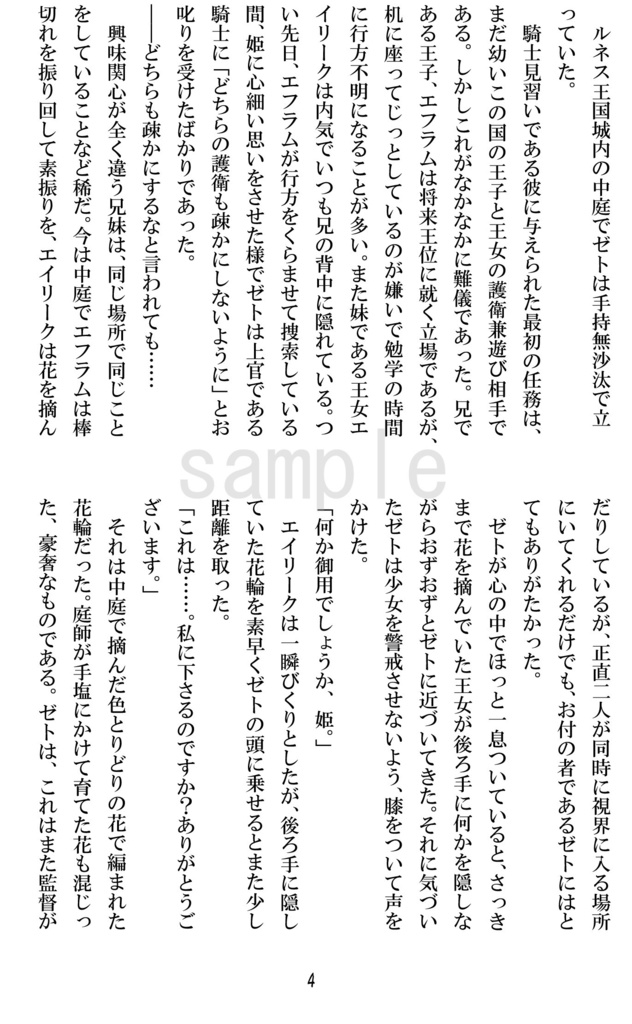 ルネス王国城内の中庭でゼトは手持無沙汰で立
っていた。
騎士見習いである彼に与えられた最初の任務は、
まだ幼いこの国の王子と王女の護衛兼遊び相手で
ある。しかしこれがなかなかに難儀であった。兄で
ある王子、エフラムは将来王位に就く立場であるが、
机に座ってじっとしているのが嫌いで勉学の時間
に行方不明になることが多い。また妹である王女エ
イリークは内気でいつも兄の背中に隠れている。つ
い先日、エフラムが行方をくらませて捜索している
間、姫に心細い思いをさせた様でゼトは上官である
騎士に「どちらの護衛も疎かにしないように」とお
叱りを受けたばかりであった。
――どちらも疎かにするなと言われても……
興味関心が全く違う兄妹は、同じ場所で同じこと
をしていることなど稀だ。今は中庭でエフラムは棒
切れを振り回して素振りを、エイリークは花を摘ん
だりしているが、正直二人が同時に視界に入る場所
にいてくれるだけでも、お付の者であるゼトにはと
てもありがたかった。
ゼトが心の中でほっと一息ついていると、さっき
まで花を摘んでいた王女が後ろ手に何かを隠しな
がらおずおずとゼトに近づいてきた。それに気づい
たゼトは少女を警戒させないよう、膝をついて声を
かけた。
「何か御用でしょうか、姫。」
エイリークは一瞬びくりとしたが、後ろ手に隠し
ていた花輪を素早くゼトの頭に乗せるとまた少し
距離を取った。
「これは……。私に下さるのですか？ありがとうご
ざいます。」
それは中庭で摘んだ色とりどりの花で編まれた
花輪だった。庭師が手塩にかけて育てた花も混じっ
た、豪奢なものである。ゼトは、これはまた監督が
sample
4